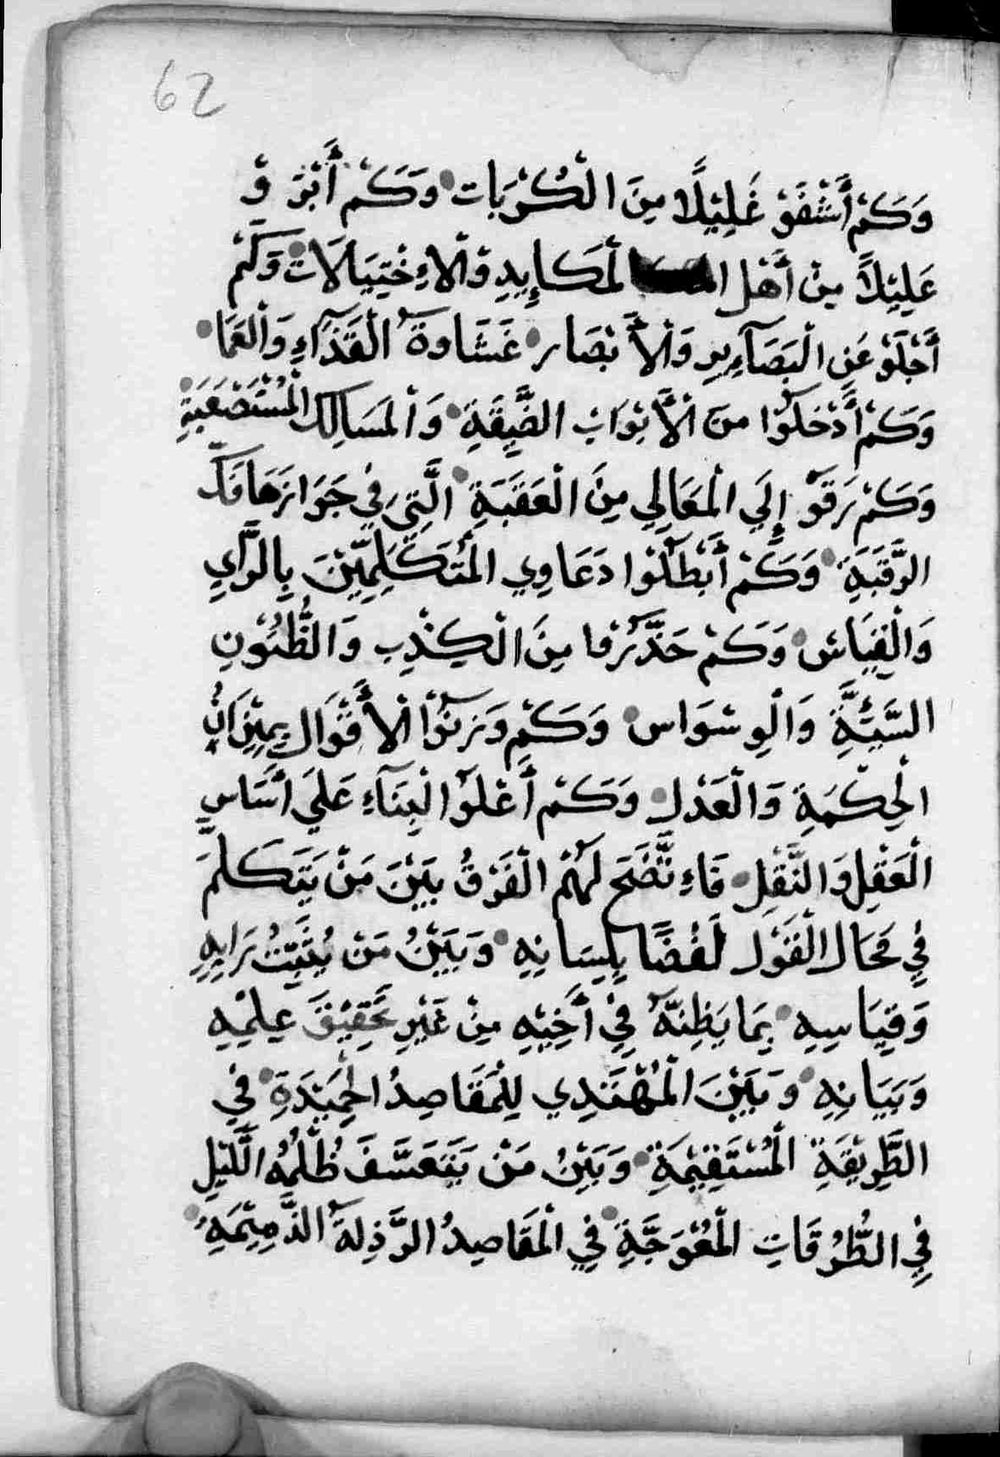 62
وَكَمْ أَشْفَوْ غَلِيْلًا مِنَ الْكُرْبَات وَكَمْ أَبْرَوْ
عَلِيْلًا مِنْ أَهْل الْمَكَايِدِ وَالْاءِخْتِيَالَات وَكَمْ
أَجْلَوْ عَنِ الْبَصَآءِرِ وَالْأَبْصَار غَشَاوَةَ الْقَذَآءِ وَالْعَمَا
وَكَمْ أَدْخَلُوْا مِنَ الْأَبْوَابْ الضَّيِقَةِ وَالْمَسَالِكْ الْمُسْتَصْعَبَةِ
وَكَمْ رَقَوْ إِلَي الْمَعَالِي مِنَ الْعَقَبَةِ الَّتِيْ فِيْ جَوَازِهَا فَكّ
الرَّقَبَةِ وَكَمْ أَبْطَلُوْا دَعَاوِي الْمُتَكَلِمِّيْنَ بِالرَّايِ
وَالْقِيَاسْ وَكَمْ حَذَّرُوْا مِنَ الْكِذْبِ وَالظُّنُوْنِ
السَّيِّئَةِ وَالْوِسْوَاس وَكَمْ وَزَنُوْا الْأَقْوَال بِمِيْزَانْ
الْحِكْمَةِ وَالْعَدْل وَكَمْ أَعْلَوْ الْبِنَآءِ عَلَيَ أَسَاسِ
الْعَقْلِ وَالنَّقْلِ فَاءِتَّضَحَ لَهُمْ الْفَرْقُ بَيْنَ مَنْ يَتَكَلَّمَ
فِيْ مَحَال الْقَوْل لَفْضًا بِلِسَانِهِ وَبَيْنُ مَنْ يُثَبِّتُ بَرَايِهِ
وَقِيَاسِهِ بِمَا يَظِنَّهُ فِيْ أَخِيْهِ مِنْ غَيْرِ تَحْقِيْقَ عِلْمِهِ
وَبَيَانِهِ وَبَيْنَ الْمُهْتَدِي لِلْمَقَاصِدُ الْحَمِيْدَةِ فِيْ
الطَّرِيْقَةِ الْمُسْتَقِيْمَةِ وَبَيْنُ مَنْ يَتَعَسَّفَ ظُلْمَهُ اللَّيْلِ
فِيِ الطُّرُقَاتِ الْمُعْوَجَّةِ فِيْ الْمَقَاصِدُ الرَّذِلَةَ الذَّمِيْمَةِ